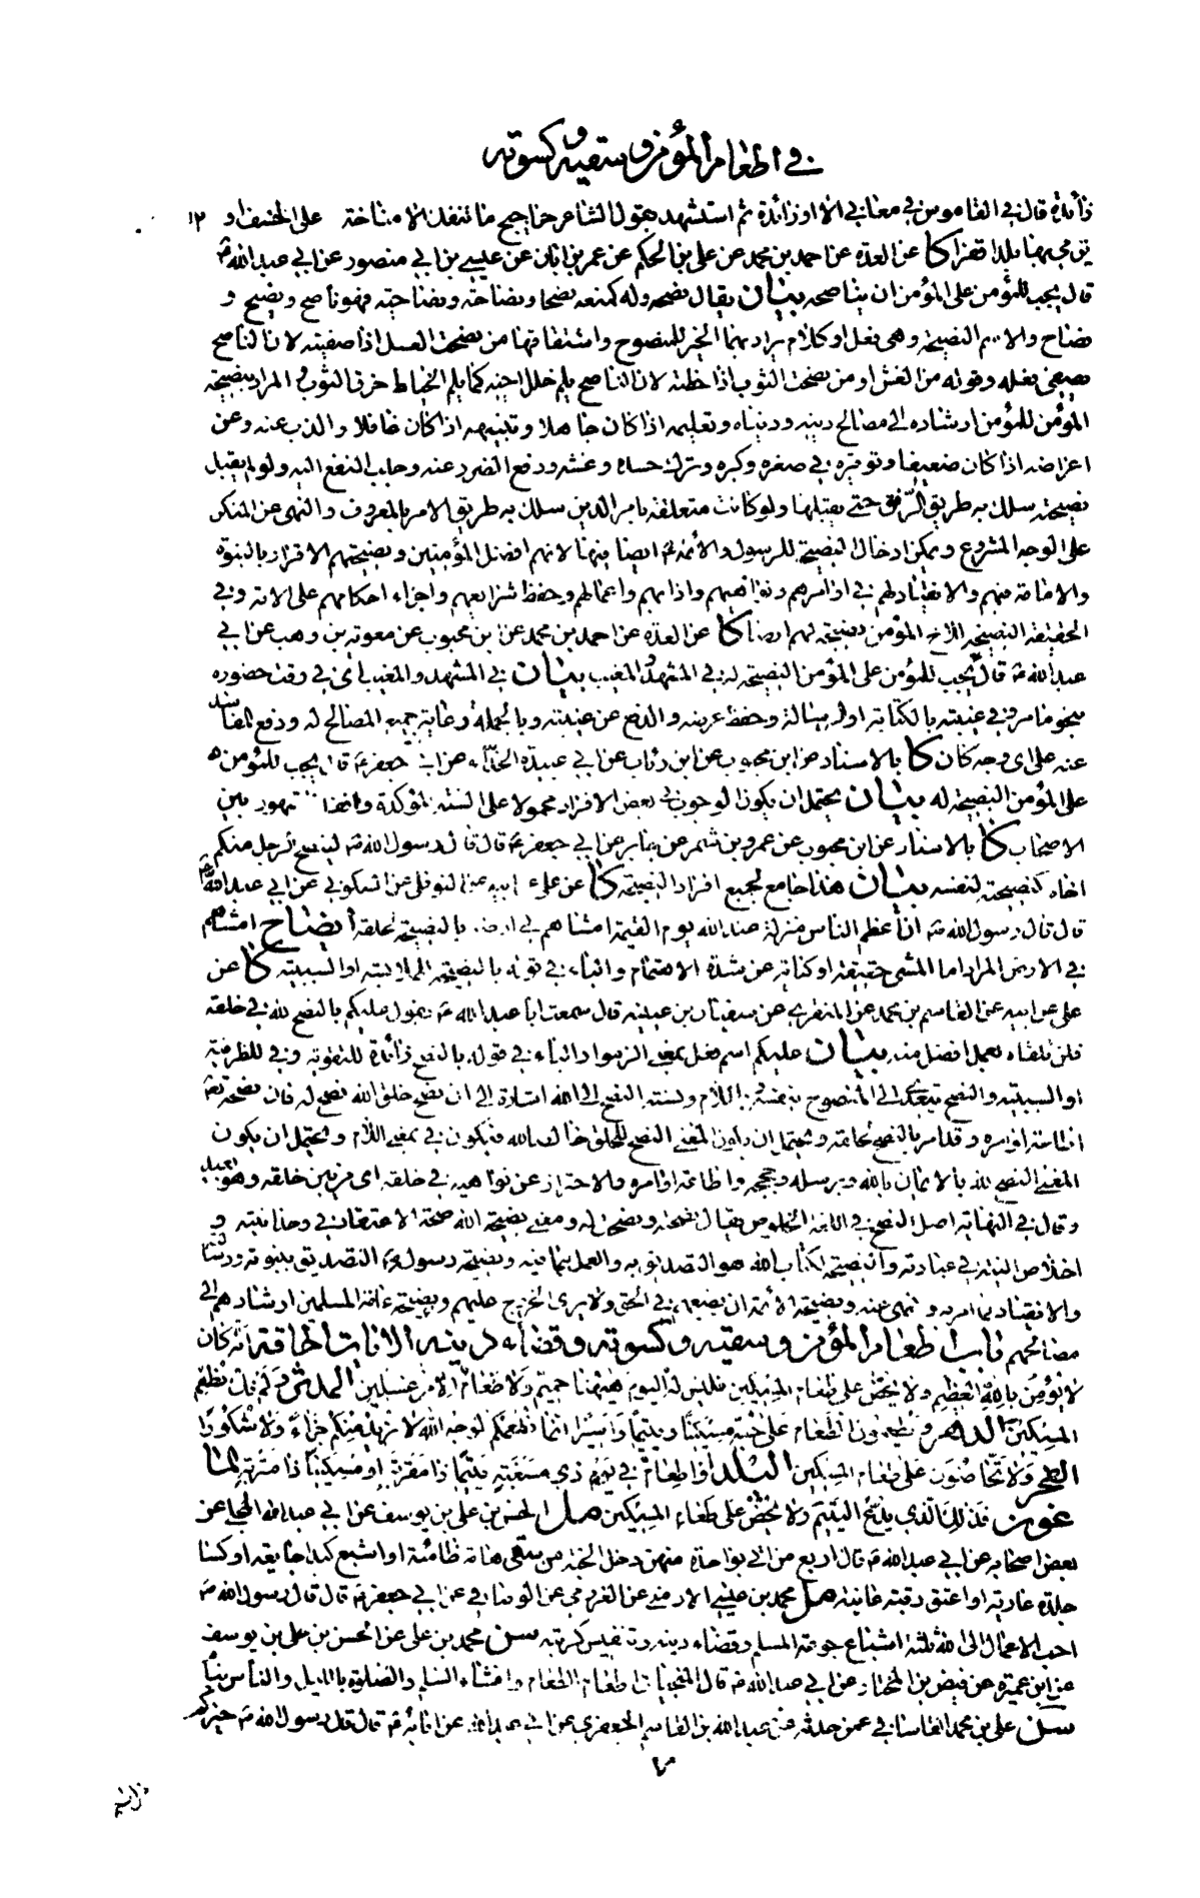 في اطعام المؤمن وسقيه وكسوته
زائدة قال في القاموس في معاني الا او زائدة ثم استشهد بقول الشاعر حراجيج ما تنفك الا مناخة على الخسف او ١٢
بها بلدا قفرا كا عن العدة عن احمد بن محمد عن علي بن الحكم عن عمر بن ابان عن عيسى بن ابي منصور عن ابي عبد الله ع
قال يجب للمؤمن على المؤمن ان يناصحه بيان يقال نصحه وله كمنعه نصحا ونصاحة ونصاحية فهو ناصح ونصيح و
نصاح والاسم النصيحة وهي فعل او كلام يراد بهما الخير للمنصوح واشتقاقها من نصحت العسل اذا صفيته لان الناصح
يصفي فعله وقوله من الغش او من نصحت الثوب اذا خطته لان الناصح يلم خلل اخيه كما يلم الخياط خرق الثوب والمراد بنصيحة
المؤمن للمؤمن ارشاده الى مصالح دينه ودنياه وتعليمه اذا كان جاهلا وتنبيهه اذا كان غافلا والذب عنه وعن
اعراضه اذا كان ضعيفا وتوقيره في صغره وكبره وترك حسده وغشه ودفع الضرر عنه وجلب النفع اليه ولو لم يقبل
نصيحته سلك به طريق الرفق حتى يقبلها ولو كانت متعلقة بامر الدين سلك به طريق الامر بالمعروف والنهي عن المنكر
على الوجه المشروع ويمكن ادخال النصيحة للرسول والأئمة ع ايضا فيها لانهم افضل المؤمنين ونصيحتهم الاقرار بالنبوة
والامامة فيهم والانقياد لهم في اوامرهم ونواهيهم وادابهم واعمالهم وحفظ شرائعهم واجراء احكامهم على الامة وفي
الحقيقة النصيحة للاخ المؤمن نصيحة لهم ايضا كا عن العدة عن احمد بن محمد عن ابن محبوب عن معوية بن وهب عن ابي
عبد الله ع قال يجب للمؤمن على المؤمن النصيحة له في المشهد والمغيب بيان في المشهد والمغيب اي في وقت حضوره
بنحو ما مر وفي غيبته بالكتابة او الرسالة وحفظ عرضه والدفع عن غيبته وبالجملة رعاية جميع المصالح له ودفع المفاسد
عنه على اي وجه كان كا بالاسناد عن ابن محبوب عن ابن رئاب عن ابي عبيدة الحذاء عن ابي جعفر ع قال يجب للمؤمن
على المؤمن النصيحة له بيان يحتمل ان يكون الوجوب في بعض الافراد محمولا على السنة المؤكدة وفاقا للمشهور بين
الاصحاب كا بالاسناد عن ابن محبوب عن عمرو بن شمر عن جابر عن ابي جعفر ع قال قال رسول الله ص لينصح الرجل منكم
اخاه كنصيحته لنفسه بيان هذا جامع لجميع افراد النصيحة كا عن علي عن ابيه عن النوفلي عن السكوني عن ابي عبد الله ع
قال قال رسول الله ص ان أعظم الناس منزلة عند الله يوم القيمة امشاهم في ارضه بالنصيحة لخلقه ايضاح امشاهم
في الارض المراد اما المشي حقيقة او كناية عن شدة الاهتمام والباء في قوله بالنصيحة للملابسة او السببية كا عن
علي عن ابيه عن القاسم بن محمد عن المنقري عن سفيان بن عيينة قال سمعت ابا عبد الله ع يقول عليكم بالنصح لله في خلقه
فلن تلقاه بعمل افضل منه بيان عليكم اسم فعل بمعنى الزموا والباء في قوله بالنصح زائدة للتقوية وفي للظرفية
او السببية والنصح يتعدى الى المنصوح بنفسه وباللام ونسبة النصح الى الله اشارة الى ان نصح خلق الله نصح له فان نصحه تع
اطاعة اوامره وقد امر بالنصح لخلقه ويحتمل ان يكون المعنى النصح للخلق خالصا لله فيكون في بمعنى اللام ويحتمل ان يكون
المعنى النصح لله بالايمان بالله وبرسله وحججه واطاعة اوامره والاحتراز عن نواهيه في خلقه اي من بين خلقه وهو بعيد
وقال في النهاية اصل النصح في اللغة الخلوص يقال نصحته ونصحت له ومعنى نصيحة الله صحة الاعتقاد في وحدانيته و
اخلاص النية في عبادته والنصيحة لكتاب الله هو التصديق به والعمل بما فيه ونصيحة رسوله التصديق بنبوته ورسالته
والانقياد لما امر به ونهى عنه ونصيحة الأئمة ان يطيعهم في الحق ولا يرى الخروج عليهم ونصيحة عامة المسلمين ارشادهم الى
مصالحهم باب اطعام المؤمن وسقيه وكسوته وقضاء دينه الايات الحاقة انه كان
لا يؤمن بالله العظيم ولا يحض على طعام المسكين فليس له اليوم ههنا حميم ولا طعام الا من غسلين المدثر ولم نك نطعم
المسكين الدهر ويطعمون الطعام على حبه مسكينا ويتيما واسيرا انما نطعمكم لوجه الله لا نريد منكم جزاء ولا شكورا
الفجر ولا تحاضون على طعام المسكين البلد او اطعام في يوم ذي مسغبة يتيما ذا مقربة او مسكينا ذا متربة الما
عون فذلك الذي يدع اليتيم ولا يحض على طعام المسكين مل الحسن بن علي بن يوسف عن ابي عبد الله البجلي عن
بعض اصحابه عن ابي عبد الله ع قال اربع من اتى بواحدة منهن دخل الجنة من سقى هامة ظامئة او اشبع كبدا جايعة او كسا
جلدة عارية او اعتق رقبة عانية مل محمد بن عيسى الارمني عن العرزمي عن الوصافي عن ابي جعفر ع قال قال رسول الله ص
احب الاعمال الى الله ثلثة اشباع جوعة المسلم وقضاء دينه وتنفيس كربته سن محمد بن علي عن الحسن بن علي بن يوسف
عن ابن عميرة عن فيض بن المختار عن ابي عبد الله ع قال المنجيات اطعام الطعام وافشاء السلام والصلوة بالليل والناس نيام
سن علي بن محمد القاساني عمن حدثه عن عبد الله بن القاسم الجعفري عن ابي عبد الله عن ابائه ع قال قال رسول الله ص خيركم